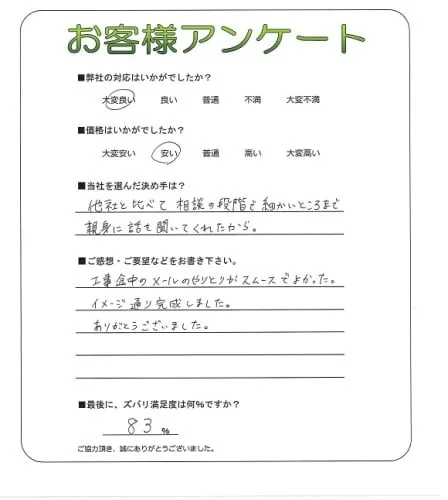 お客様アンケート
■弊社の対応はいかがでしたか？
大変良い 良い 普通 不満 大変不満
■価格はいかがでしたか？
大変安い 安い 普通 高い 大変高い
■当社を選んだ決め手は？
他社と比べて相談の段階で細かいところまで
親身に話を聞いてくれたから。
■ご感想・ご要望などをお書き下さい。
工事途中のメールのやりとりがスムースでよかった。
イメージ通り完成しました。
ありがとうございました。
■最後に、ズバリ満足度は何%ですか？
83 %
ご協力頂き、誠にありがとうございました。